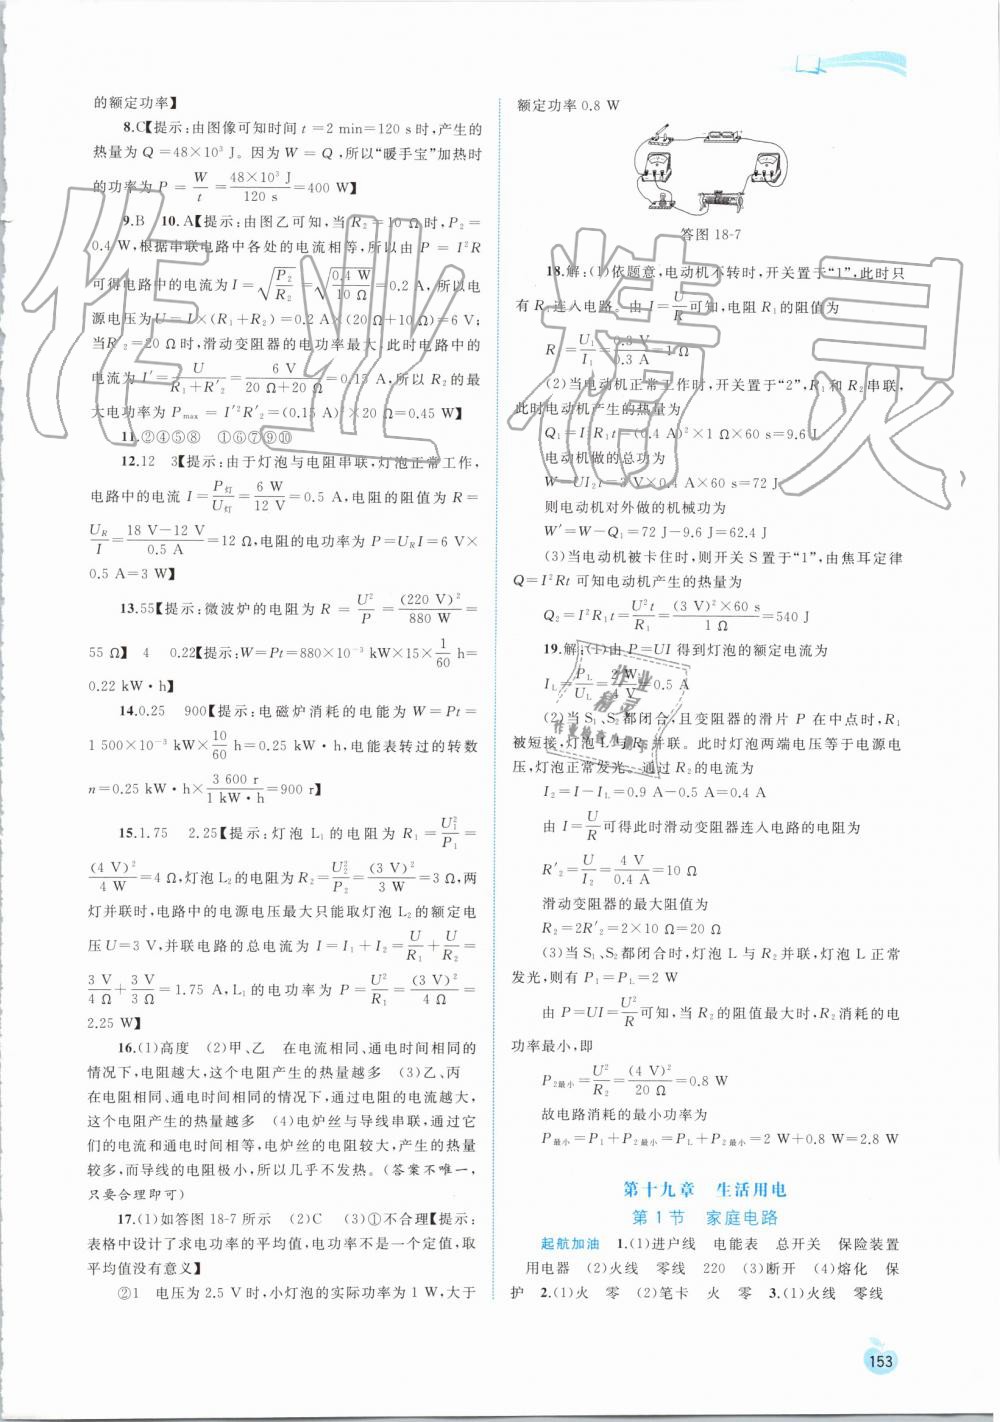 的额定功率】
8.C【提示:由图像可知时间 t=2 min=120 s时,产生的
热量为 Q=48×10³ J。因为 W=Q,所以“暖手宝”加热时
的功率为 P=W/t=48×10³ J/120 s=400 W】
9.B 10.A【提示:由图乙可知,当 R₂=10 Ω时,P₂=
0.4 W,根据串联电路中各处的电流相等,所以由 P=I²R
可得电路中的电流为 I=√(P₂/R₂)=√(0.4 W/10 Ω)=0.2 A,所以电
源电压为 U=I×(R₁+R₂)=0.2 A×(20 Ω+10 Ω)=6 V;
当R′₂=20 Ω时,滑动变阻器的电功率最大,此时电路中的
电流为 I′=U/(R₁+R′₂)=6 V/(20 Ω+20 Ω)=0.15 A,所以 R₂的最
大电功率为 Pmax=I′²R′₂=(0.15 A)²×20 Ω=0.45 W】
11.②④⑤⑧ ①⑥⑦⑨⑩
12.12 3【提示:由于灯泡与电阻串联,灯泡正常工作,
电路中的电流 I=P灯/U灯=6 W/12 V=0.5 A,电阻的阻值为 R=
U_R/I=(18 V−12 V)/0.5 A=12 Ω,电阻的电功率为 P=U_R I=6 V×
0.5 A=3 W】
13.55【提示:微波炉的电阻为 R=U²/P=(220 V)²/880 W=
55 Ω】 4 0.22【提示:W=Pt=880×10⁻³ kW×15×1/60 h=
0.22 kW·h】
14.0.25 900【提示:电磁炉消耗的电能为 W=Pt=
1 500×10⁻³ kW×10/60 h=0.25 kW·h,电能表转过的转数
n=0.25 kW·h×3 600 r/1 kW·h=900 r】
15.1.75 2.25【提示:灯泡 L₁的电阻为 R₁=U₁²/P₁=
(4 V)²/4 W=4 Ω,灯泡 L₂的电阻为 R₂=U₂²/P₂=(3 V)²/3 W=3 Ω,两
灯并联时,电路中的电源电压最大只能取灯泡 L₂的额定电
压 U=3 V,并联电路的总电流为 I=I₁+I₂=U/R₁+U/R₂=
3 V/4 Ω+3 V/3 Ω=1.75 A,L₁的电功率为 P=U²/R₁=(3 V)²/4 Ω=
2.25 W】
16.(1)高度 (2)甲、乙 在电流相同、通电时间相同的
情况下,电阻越大,这个电阻产生的热量越多 (3)乙、丙
在电阻相同、通电时间相同的情况下,通过电阻的电流越大,
这个电阻产生的热量越多 (4)电炉丝与导线串联,通过它
们的电流和通电时间相等,电炉丝的电阻较大,产生的热量
较多,而导线的电阻极小,所以几乎不发热。(答案不唯一,
只要合理即可)
17.(1)如答图 18-7 所示 (2)C (3)①不合理【提示:
表格中设计了求电功率的平均值,电功率不是一个定值,取
平均值没有意义】
②1 电压为 2.5 V时,小灯泡的实际功率为 1 W,大于
额定功率 0.8 W
答图 18-7
18.解:(1)依题意,电动机不转时,开关置于“1”,此时只
有 R₁连入电路。由 I=U/R可知,电阻 R₁的阻值为
R₁=U₁/I₁=0.3 V/0.3 A=1 Ω
(2)当电动机正常工作时,开关置于“2”,R₁和 R₂串联,
此时电动机产生的热量为
Q₁=I₂²R₁t=(0.4 A)²×1 Ω×60 s=9.6 J
电动机做的总功为
W=UI₂t=3 V×0.4 A×60 s=72 J
则电动机对外做的机械功为
W′=W−Q₁=72 J−9.6 J=62.4 J
(3)当电动机被卡住时,则开关 S置于“1”,由焦耳定律
Q=I²Rt 可知电动机产生的热量为
Q₂=I²R₁t=U²t/R₁=(3 V)²×60 s/1 Ω=540 J
19.解:(1)由 P=UI 得到灯泡的额定电流为
I_L=P_L/U_L=2 W/4 V=0.5 A
(2)当 S₁、S₂都闭合,且变阻器的滑片 P 在中点时,R₁
被短接,灯泡 L与 R₂并联。此时灯泡两端电压等于电源电
压,灯泡正常发光。通过 R₂的电流为
I₂=I−I_L=0.9 A−0.5 A=0.4 A
由 I=U/R可得此时滑动变阻器连入电路的电阻为
R′₂=U/I₂=4 V/0.4 A=10 Ω
滑动变阻器的最大阻值为
R₂=2R′₂=2×10 Ω=20 Ω
(3)当 S₁、S₂都闭合时,灯泡 L与 R₂并联,灯泡 L正常
发光,则有 P₁=P_L=2 W
由 P=UI=U²/R可知,当 R₂的阻值最大时,R₂消耗的电
功率最小,即
P₂最小=U²/R₂=(4 V)²/20 Ω=0.8 W
故电路消耗的最小功率为
P最小=P₁+P₂最小=P_L+P₂最小=2 W+0.8 W=2.8 W
第十九章 生活用电
第 1 节 家庭电路
起航加油 1.(1)进户线 电能表 总开关 保险装置
用电器 (2)火线 零线 220 (3)断开 (4)熔化 保
护 2.(1)火 零 (2)笔卡 火 零 3.(1)火线 零线
153
作业精灵
作业
精灵
作业检查小助手